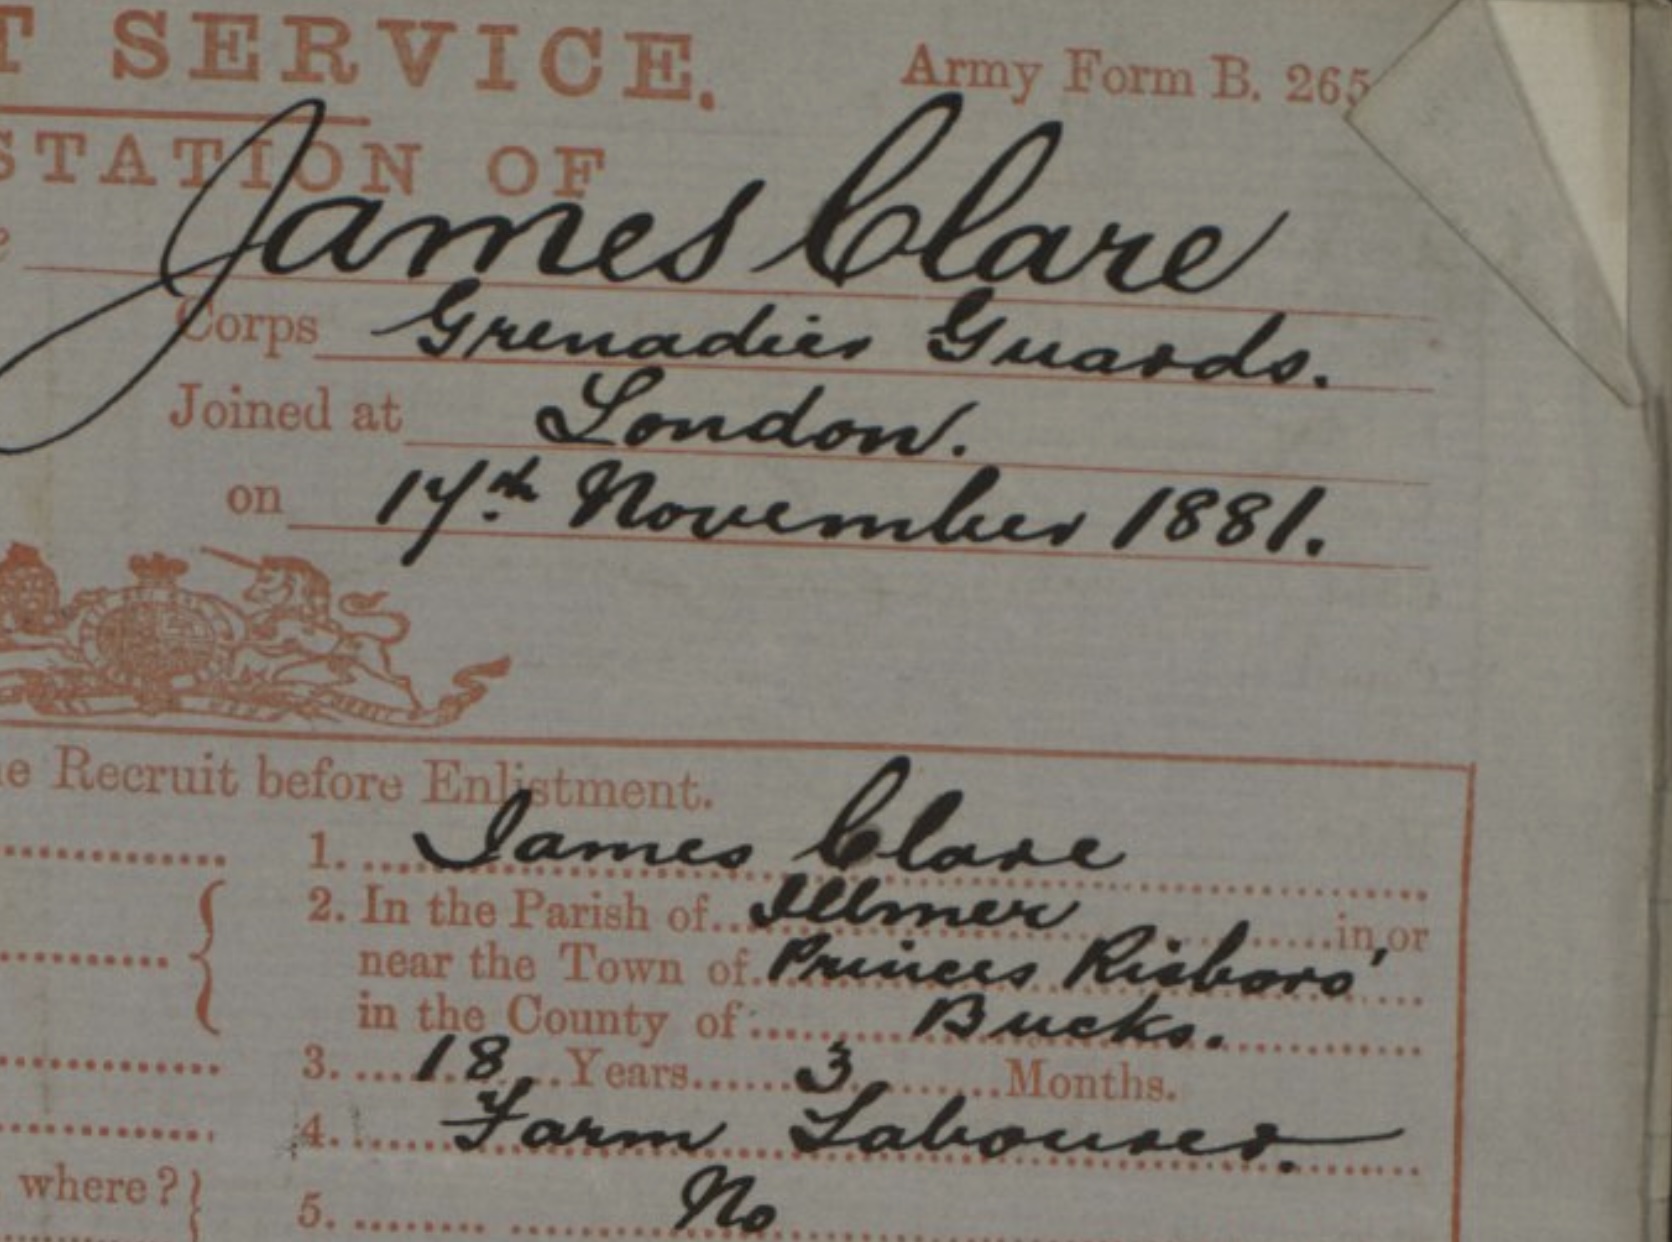 T SERVICE.
Army Form B. 265
STATION OF
James Clare
Corps Grenadier Guards.
Joined at London.
on 17th November 1881.
e Recruit before Enlistment.
1. James Clare
2. In the Parish of Illmer in, or
near the Town of Princes Risboro'
in the County of Bucks.
3. 18 Years 3 Months.
4. Farm Labourer.
where?
5. No